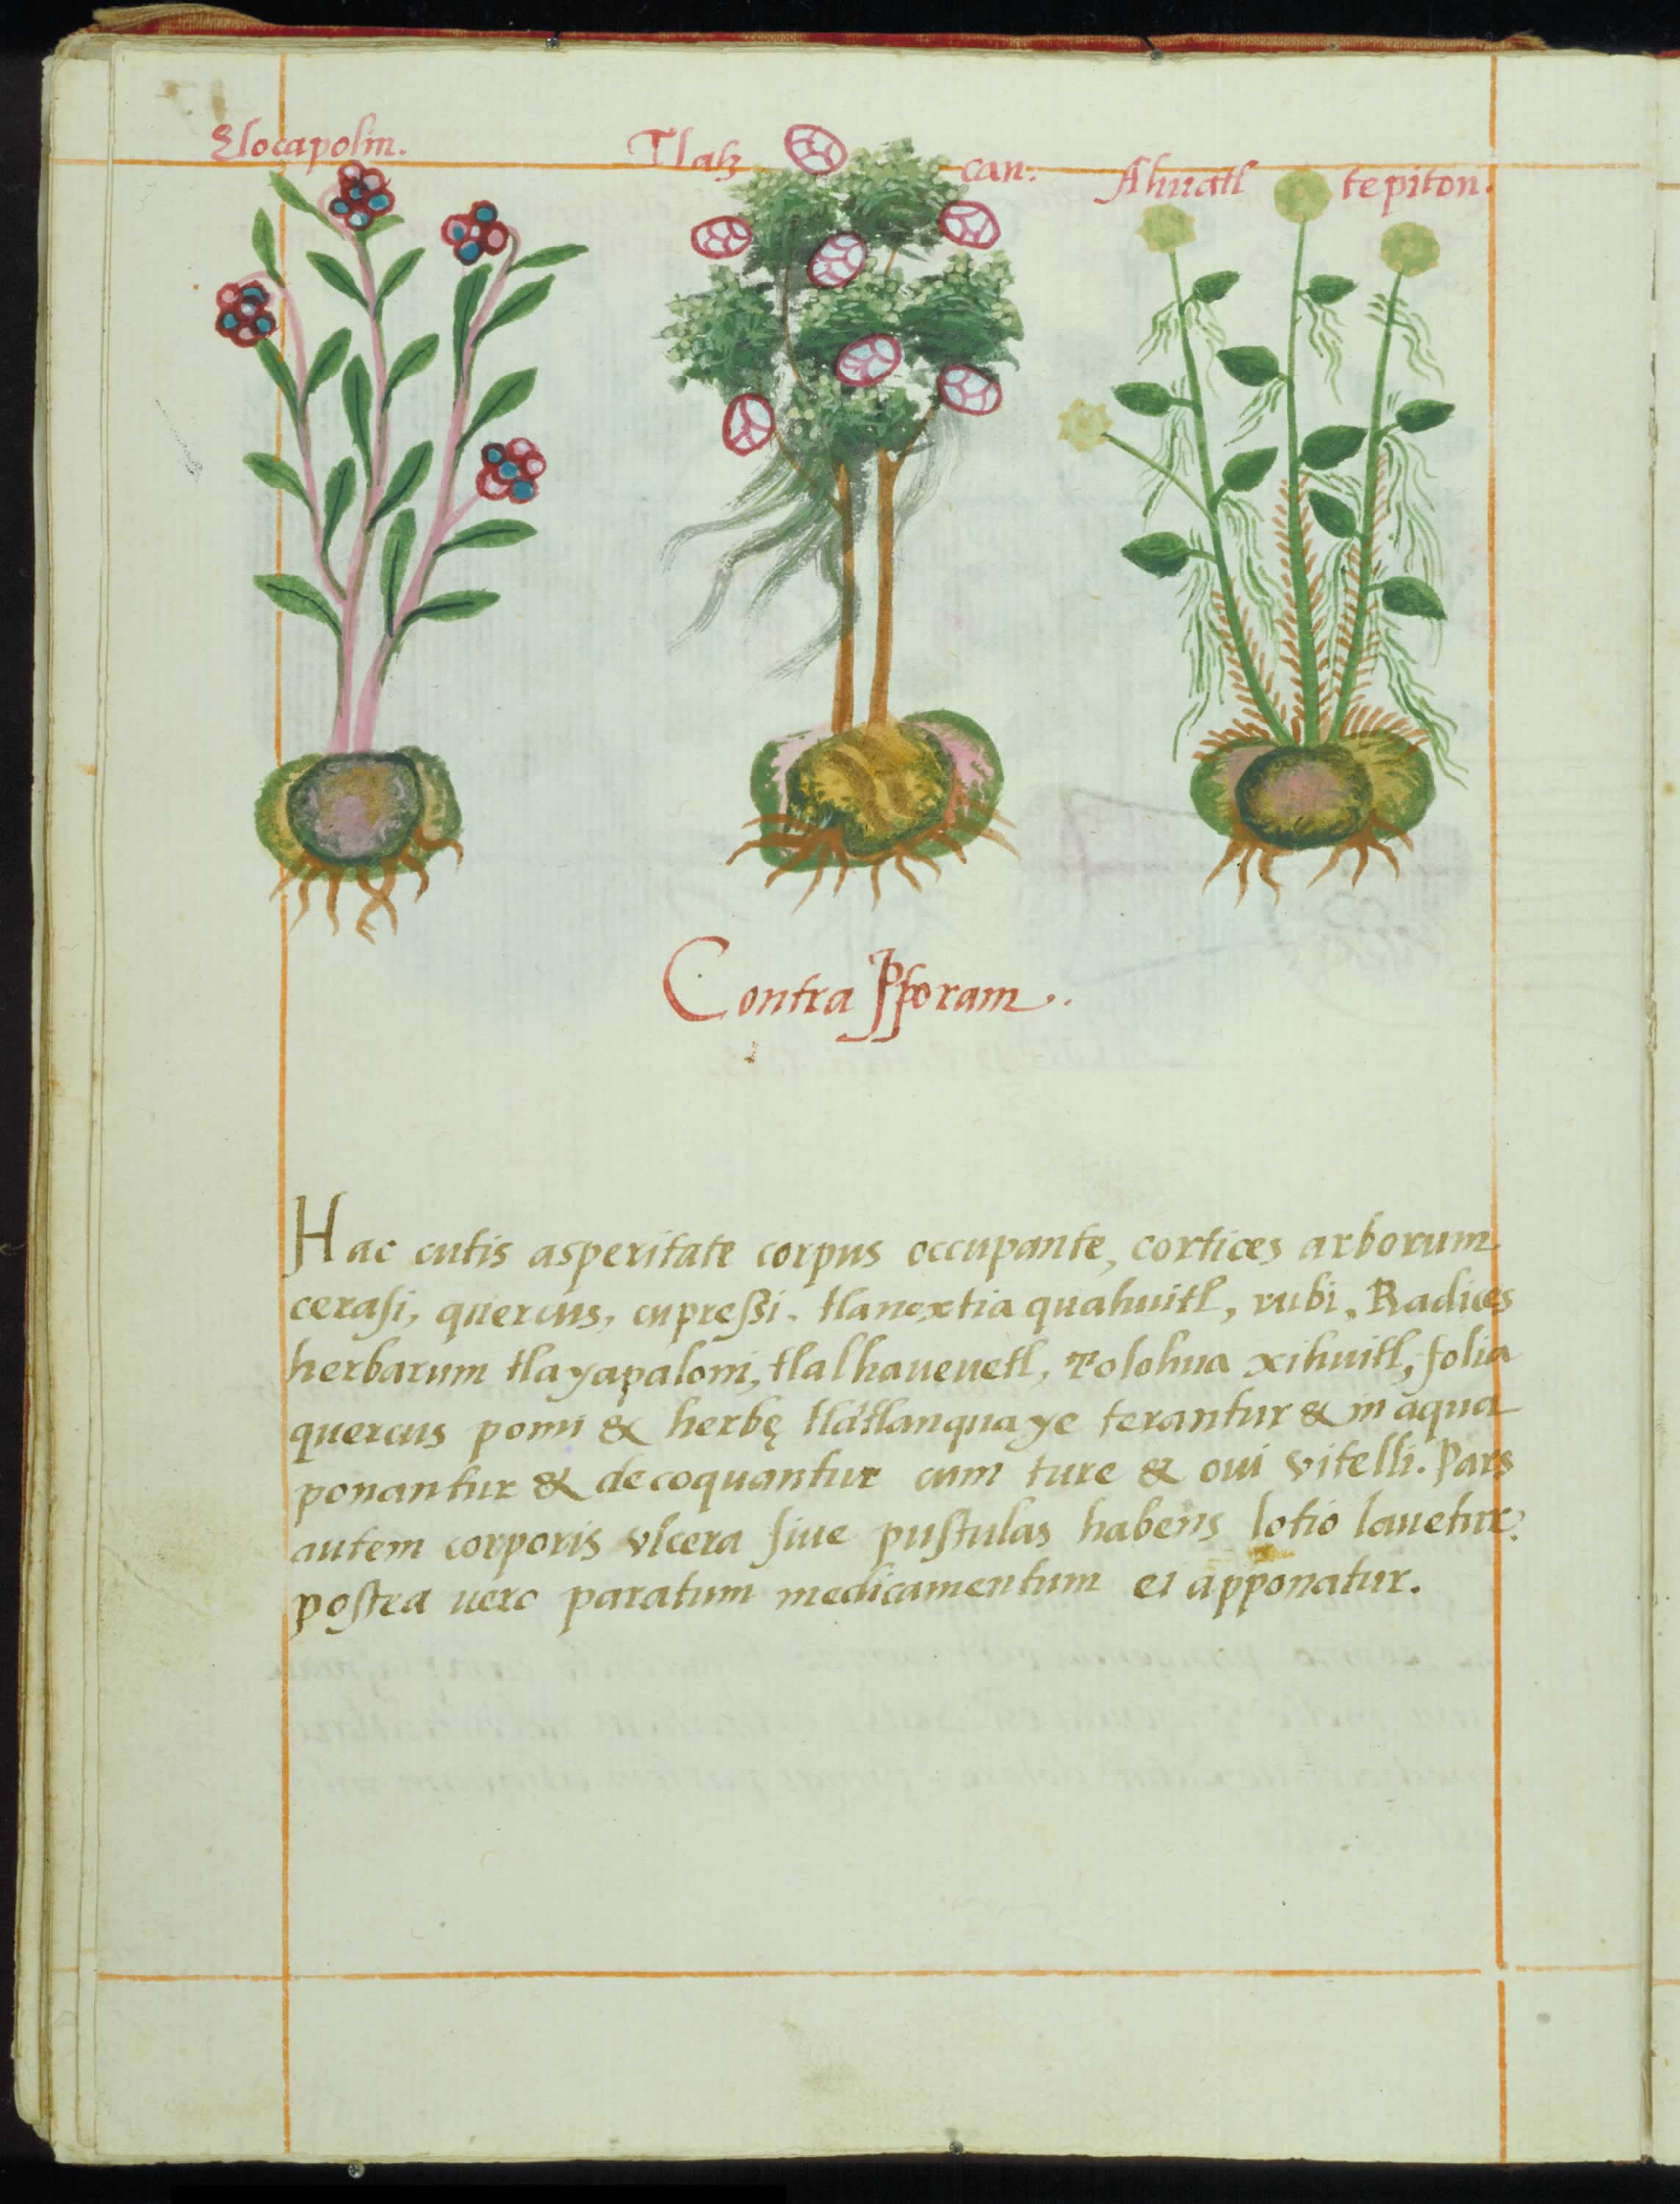 Elocapolin. Tlatz can: Ahuatl tepiton.
Contra Psoram.
Hac cutis asperitate corpus occupante, cortices arborum
cerasi, quercus, cupressi. tlanextia quahuitl, rubi, Radices
herbarum tlayapaloni, tlalhaueuetl, Tolohua xihuitl, folia
quercus pomi & herbę tlatlanquaye terantur & in aqua
ponantur & decoquantur cum ture & oui vitelli. Pars
autem corporis vlcera siue pustulas habens lotio lauetur:
postea uero paratum medicamentum ei apponatur.